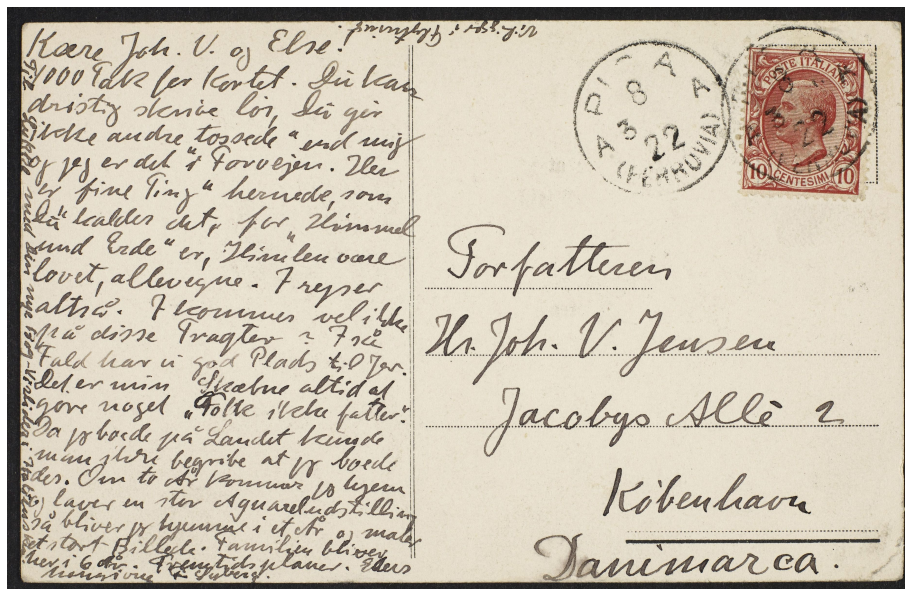 Kære Joh. V. og Else!
1000 Tak for Kortet. Du kan
dristig skrive los, Du gør
ikke andre tossede" end mig
og jeg er det" i Forvejen. Her
er fine Ting" hernede, som
Du" kalder det," for "Himmel
und Erde" er, Himlen være
lovet, allevegne. I rejser
altså. I kommer vel ikke
på disse Tragter? I så
Fald har vi god Plads til Jer.
Det er min Skæbne altid at
gøre noget "Folk ikke fatter".
Da jeg boede på Landet kunde
man ikke begribe at jeg boede
der. Om to År kommer jeg hjem
og laver en stor Aquareludstilling
så bliver jeg hjemme i et År og maler
et stort Billede. Familien bliver
her i 6 År. Fremtidsplaner. Eders
hengivne
Til Lykke med din nye
Vi ligger i Flytning
PISA
8
3
22
(FERROVIA)
POSTE ITALIANE
10 CENTESIMI 10
Forfatteren
Hr. Joh. V. Jensen
Jacobys Allè 2
København
Danimarca.